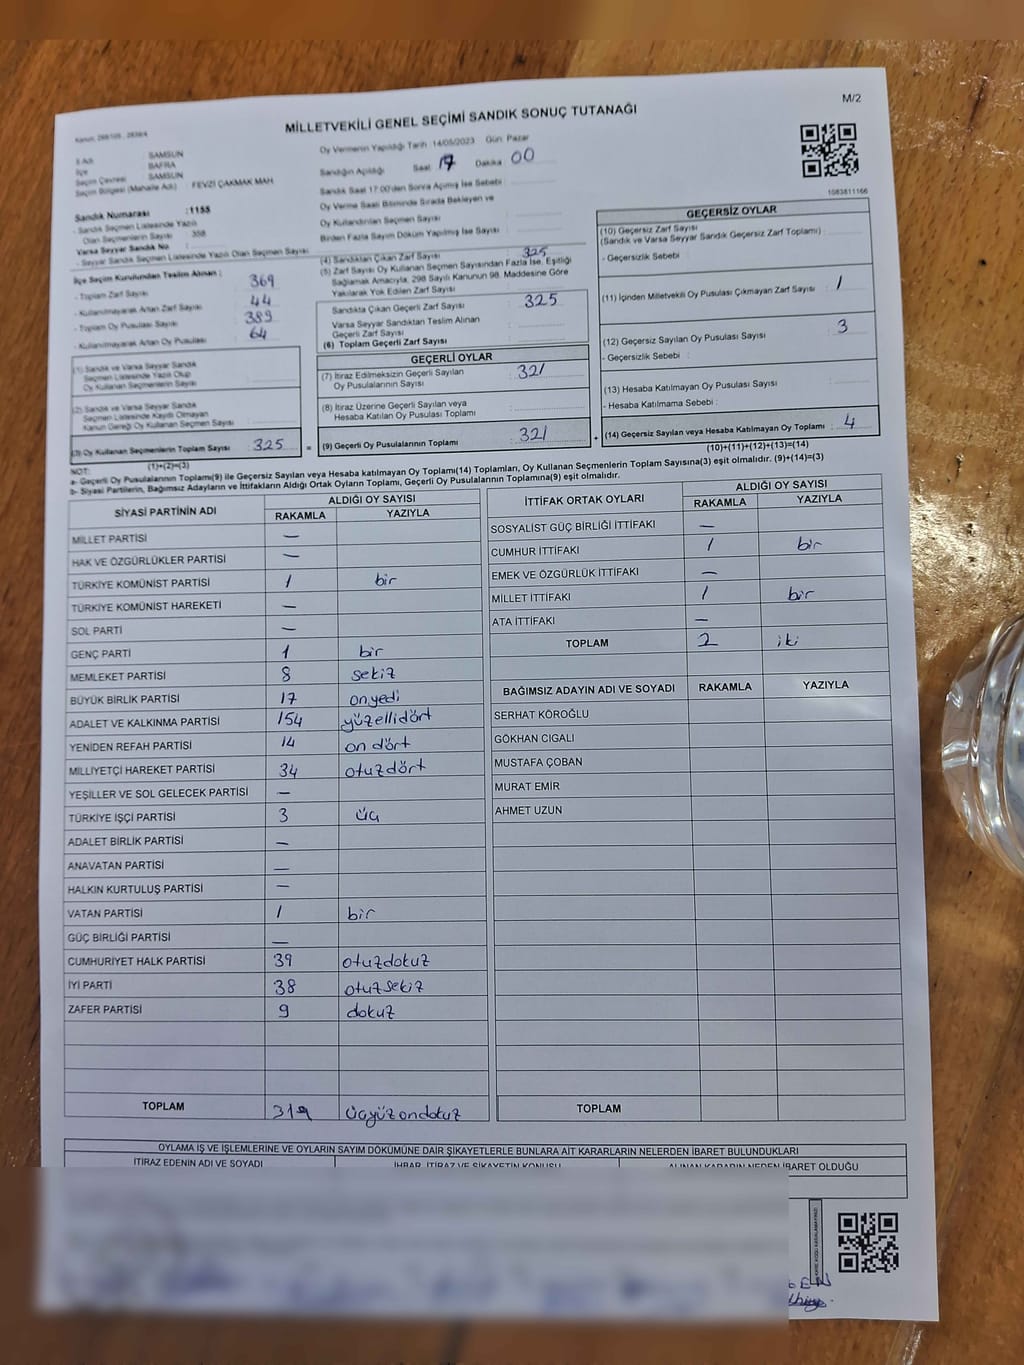 M/2
MİLLETVEKİLİ GENEL SEÇİMİ SANDIK SONUÇ TUTANAĞI
İl Adı : SAMSUN
İlçe : BAFRA
Seçim Çevresi : SAMSUN
Seçim Bölgesi (Mahalle Adı) : FEVZİ ÇAKMAK MAH.
Sandık Numarası : 1155
- Sandık Seçmen Listesinde Yazılı
Olan Seçmenlerin Sayısı : 358
Varsa Seyyar Sandık No :
- Seyyar Sandık Seçmen Listesinde Yazılı Olan Seçmen Sayısı
Oy Vermenin Yapıldığı Tarih : 14/05/2023 Gün: Pazar
Sandığın Açıldığı Saat 17 Dakika 00
Sandık Saat 17:00'den Sonra Açılmış İse Sebebi :
Oy Verme Saati Bitiminde Sırada Bekleyen ve
Oy Kullandırılan Seçmen Sayısı :
Birden Fazla Sayım Döküm Yapılmış İse Sayısı :
1083811166
İlçe Seçim Kurulundan Teslim Alınan :
- Toplam Zarf Sayısı : 369
- Kullanılmayarak Artan Zarf Sayısı : 44
- Toplam Oy Pusulası Sayısı : 389
- Kullanılmayarak Artan Oy Pusulası : 64
(1) Sandık ve Varsa Seyyar Sandık
Seçmen Listesinde Yazılı Olup
Oy Kullanan Seçmenlerin Sayısı :
(2) Sandık ve Varsa Seyyar Sandık
Seçmen Listesinde Kayıtlı Olmayan
Kanun Gereği Oy Kullanan Seçmen Sayısı :
(3) Oy Kullanan Seçmenlerin Toplam Sayısı : 325
(1)+(2)=(3)
(4) Sandıktan Çıkan Zarf Sayısı : 325
(5) Zarf Sayısı Oy Kullanan Seçmen Sayısından Fazla İse, Eşitliği
Sağlamak Amacıyla, 298 Sayılı Kanunun 98. Maddesine Göre
Yakılarak Yok Edilen Zarf Sayısı :
Sandıkta Çıkan Geçerli Zarf Sayısı : 325
Varsa Seyyar Sandıktan Teslim Alınan
Geçerli Zarf Sayısı :
(6) Toplam Geçerli Zarf Sayısı :
GEÇERLİ OYLAR
(7) İtiraz Edilmeksizin Geçerli Sayılan
Oy Pusulalarının Sayısı : 321
(8) İtiraz Üzerine Geçerli Sayılan veya
Hesaba Katılan Oy Pusulası Toplamı :
= (9) Geçerli Oy Pusulalarının Toplamı : 321 +
GEÇERSİZ OYLAR
(10) Geçersiz Zarf Sayısı
(Sandık ve Varsa Seyyar Sandık Geçersiz Zarf Toplamı) :
- Geçersizlik Sebebi :
(11) İçinden Milletvekili Oy Pusulası Çıkmayan Zarf Sayısı : 1
(12) Geçersiz Sayılan Oy Pusulası Sayısı : 3
- Geçersizlik Sebebi :
(13) Hesaba Katılmayan Oy Pusulası Sayısı :
- Hesaba Katılmama Sebebi :
(14) Geçersiz Sayılan veya Hesaba Katılmayan Oy Toplamı : 4
(10)+(11)+(12)+(13)=(14)
NOT:
a- Geçerli Oy Pusulalarının Toplamı(9) ile Geçersiz Sayılan veya Hesaba katılmayan Oy Toplamı(14) Toplamları, Oy Kullanan Seçmenlerin Toplam Sayısına(3) eşit olmalıdır. (9)+(14)=(3)
b- Siyasi Partilerin, Bağımsız Adayların ve İttifakların Aldığı Ortak Oyların Toplamı, Geçerli Oy Pusulalarının Toplamına(9) eşit olmalıdır.
SİYASİ PARTİNİN ADI ALDIĞI OY SAYISI
RAKAMLA YAZIYLA
MİLLET PARTİSİ —
HAK VE ÖZGÜRLÜKLER PARTİSİ —
TÜRKİYE KOMÜNİST PARTİSİ 1 bir
TÜRKİYE KOMÜNİST HAREKETİ —
SOL PARTİ —
GENÇ PARTİ 1 bir
MEMLEKET PARTİSİ 8 sekiz
BÜYÜK BİRLİK PARTİSİ 17 onyedi
ADALET VE KALKINMA PARTİSİ 154 yüzellidört
YENİDEN REFAH PARTİSİ 14 on dört
MİLLİYETÇİ HAREKET PARTİSİ 34 otuzdört
YEŞİLLER VE SOL GELECEK PARTİSİ —
TÜRKİYE İŞÇİ PARTİSİ 3 üç
ADALET BİRLİK PARTİSİ —
ANAVATAN PARTİSİ —
HALKIN KURTULUŞ PARTİSİ —
VATAN PARTİSİ 1 bir
GÜÇ BİRLİĞİ PARTİSİ —
CUMHURİYET HALK PARTİSİ 39 otuzdokuz
İYİ PARTİ 38 otuzsekiz
ZAFER PARTİSİ 9 dokuz
TOPLAM 319 üçyüzondokuz
İTTİFAK ORTAK OYLARI ALDIĞI OY SAYISI
RAKAMLA YAZIYLA
SOSYALİST GÜÇ BİRLİĞİ İTTİFAKI —
CUMHUR İTTİFAKI 1 bir
EMEK VE ÖZGÜRLÜK İTTİFAKI —
MİLLET İTTİFAKI 1 bir
ATA İTTİFAKI —
TOPLAM 2 iki
BAĞIMSIZ ADAYIN ADI VE SOYADI RAKAMLA YAZIYLA
SERHAT KÖROĞLU
GÖKHAN CIGALI
MUSTAFA ÇOBAN
MURAT EMİR
AHMET UZUN
TOPLAM
OYLAMA İŞ VE İŞLEMLERİNE VE OYLARIN SAYIM DÖKÜMÜNE DAİR ŞİKAYETLERLE BUNLARA AİT KARARLARIN NELERDEN İBARET BULUNDUKLARI
İTİRAZ EDENİN ADI VE SOYADI İHBAR, İTİRAZ VE ŞİKAYETİN KONUSU ALINAN KARARIN NEDEN İBARET OLDUĞU